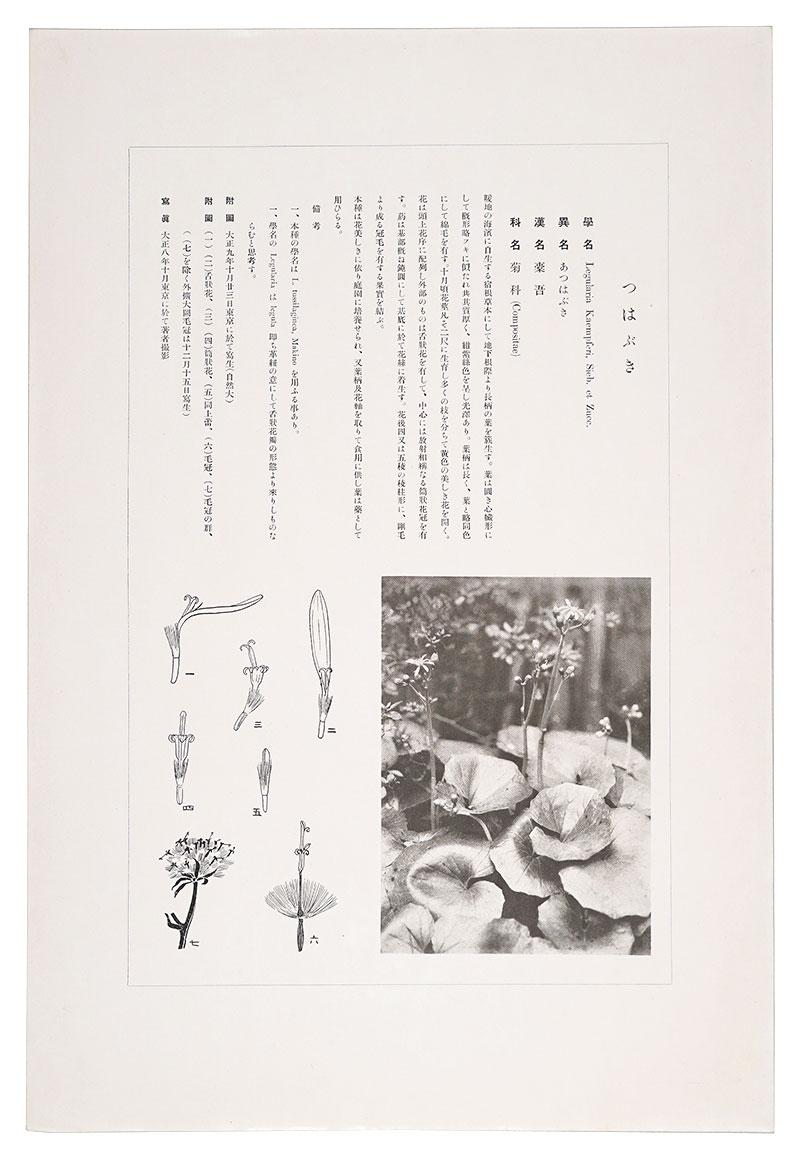 つはぶき
學名 Legularia Kaempferi, Sieb. et Zucc.
異名 あつはぶき
漢名 槖吾
科名 菊科 (Compositae)
暖地の海濱に自生する宿根草本にして地下根際より長柄の葉を簇生す。葉は圓き心臟形に
して概形略フキに似たれ共其質厚く、紺紫綠色を呈し光澤あり。葉柄は長く、葉と略同色
にして綿毛を有す。十月頃花莖凡そ二尺に生育し多くの枝を分ちて黃色の美しき花を開く。
花は頭上花序に配列し外部のものは舌狀花を有して、中心には放射相稱なる筒狀花冠を有
す。葯は基部概ね鈍圓にして基底に於て花絲に着生す。花後四又は五稜の稜柱形に、剛毛
より成る冠毛を有する果實を結ぶ。
本種は花美しきに依り庭園に培養せられ、又葉柄及花軸を取りて食用に供し葉は藥として
用ひらる。
備考
一、本種の學名は L. tussilaginea, Makino を用ふる事あり。
一、學名の Legularia は legula 卽ち革紐の意にして舌狀花瓣の形態より來りしものな
らむと思考す。
附圖 大正九年十月廿三日東京に於て寫生(自然大)
附圖 (一)(二)舌狀花、(三)(四)筒狀花、(五)同上蕾、(六)毛冠、(七)毛冠の群、
((七)を除く外擴大圖毛冠は十二月十五日寫生)
寫眞 大正八年十月東京に於て著者撮影
一
二
三
四
五
六
七